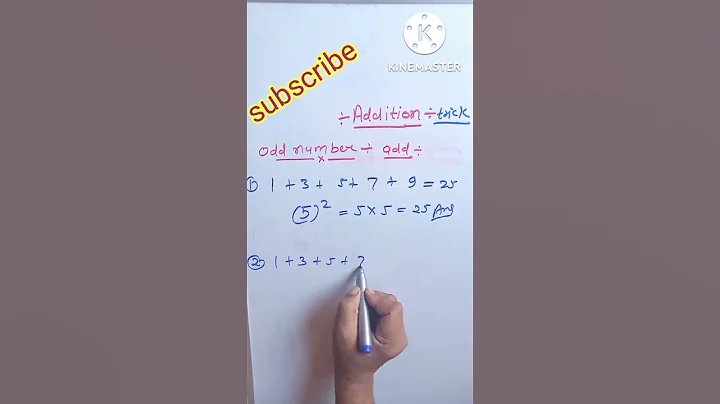 subscribe
KINEMASTER
÷ Addition ÷ trick
odd number ÷ add ÷
① 1 + 3 + 5 + 7 + 9 = 25
(5)² = 5 × 5 = 25 Ans
② 1 + 3 + 5 + 7